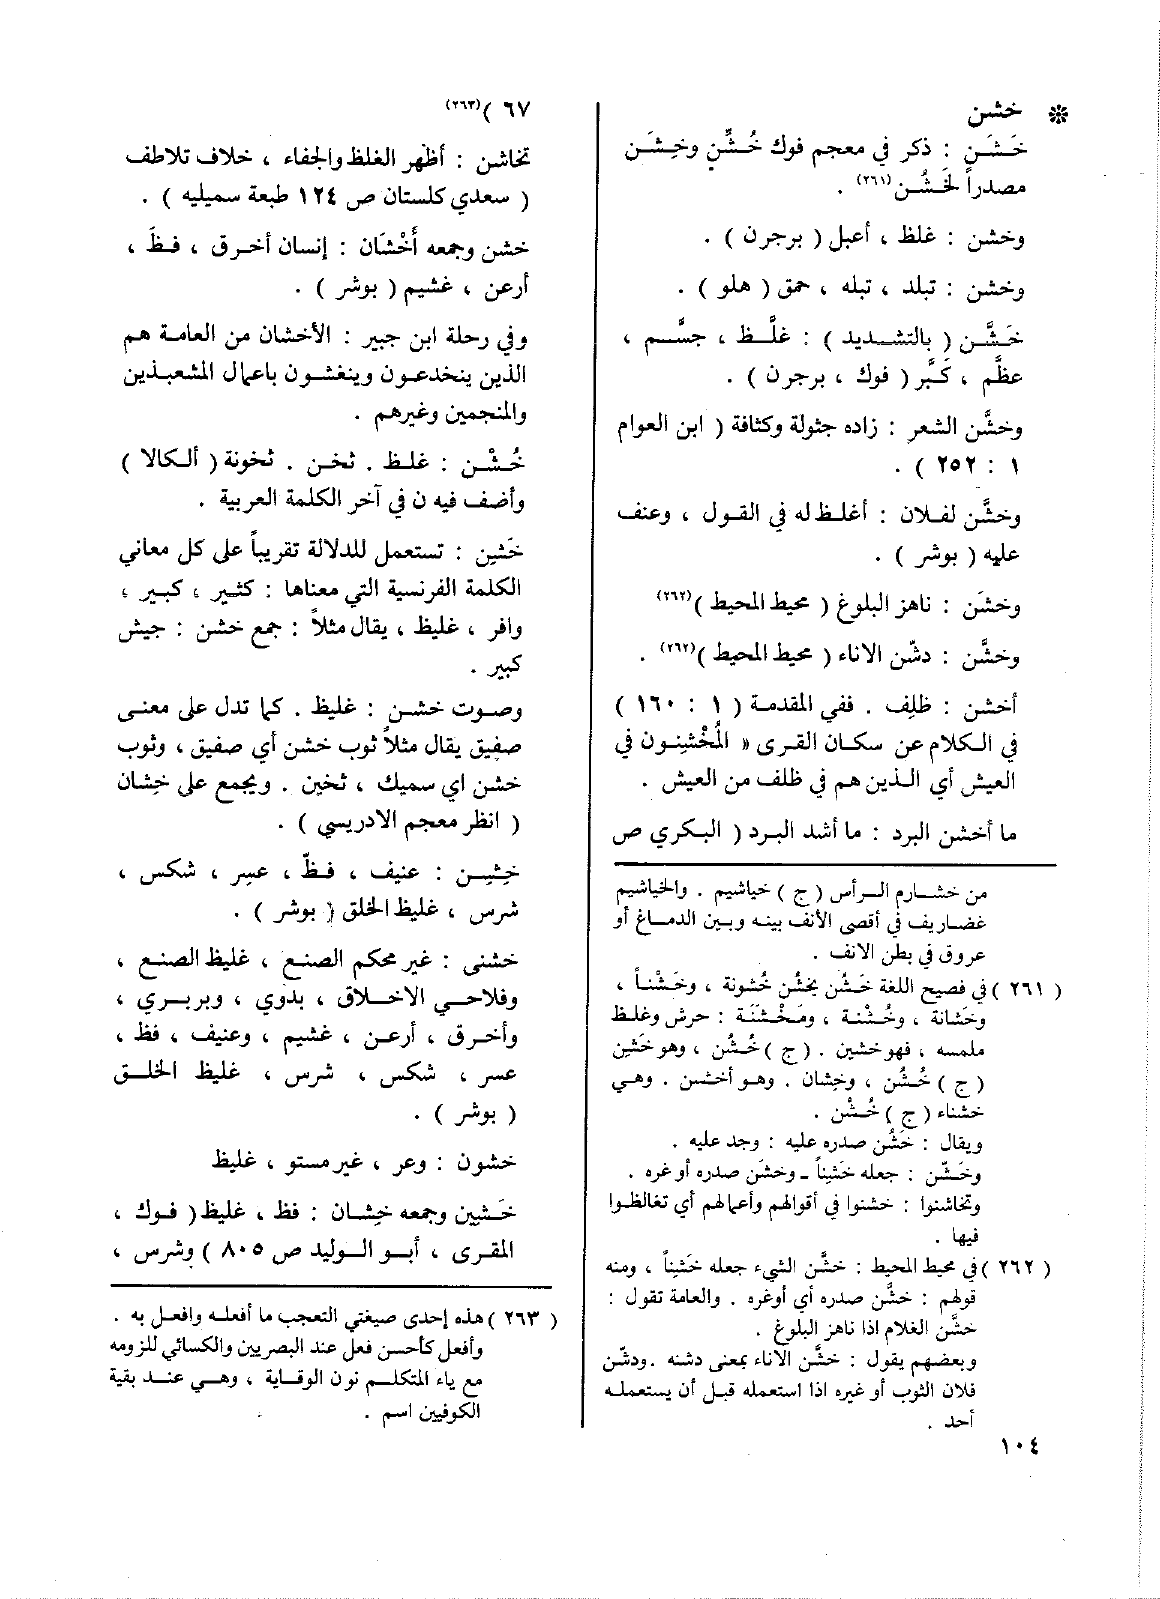 ❊ خشن
خَشَن : ذكر في معجم فوك خُشِّن وخِشَن
مصدراً لخَشُن(٢٦١) .
وخشن : غلظ ، أعبل ( برجرن ) .
وخشن : تبلد ، تبله ، حمق ( هلو ) .
خَشَّن ( بالتشديد ) : غلَّظ ، جسَّم ،
عظَّم ، كَبَّر ( فوك ، برجرن ) .
وخشَّن الشعر : زاده جثولة وكثافة ( ابن العوام
١ : ٢٥٢ ) .
وخشَّن لفلان : أغلظ له في القول ، وعنف
عليه ( بوشر ) .
وخشَن : ناهز البلوغ ( محيط المحيط )(٢٦٢)
وخشَّن : دشّن الاناء ( محيط المحيط )(٢٦٢) .
أخشن : ظلِف . ففي المقدمة ( ١ : ١٦٠ )
في الكلام عن سكان القرى « المُخْشِنون في
العيش أي الذين هم في ظلف من العيش .
ما أخشن البرد : ما أشد البرد ( البكري ص
من خشارم الرأس ( ج ) خياشيم . والخياشيم
غضاريف في أقصى الأنف بينه وبين الدماغ أو
عروق في بطن الانف .
( ٢٦١ ) في فصيح اللغة خَشُن يخشُن خُشونة ، وخَشْناً ،
وخَشانة ، وخُشْنة ، ومَخْشَنَة : حرش وغلظ
ملمسه ، فهو خشين . ( ج ) خُشُن ، وهو خَشِن
( ج ) خُشُن ، وخِشان . وهو أخشن . وهي
خشناء ( ج ) خُشْن .
ويقال : خَشُن صدره عليه : وجد عليه .
وخَشّن : جعله خَشِناً ـ وخشَن صدره أوغره .
وتخاشنوا : خشنوا في أقوالهم وأعمالهم أي تغالظوا
فيها .
( ٢٦٢ ) في محيط المحيط : خشَّن الشيء جعله خَشِناً ، ومنه
قولهم : خشَّن صدره أي أوغره . والعامة تقول :
خشَّن الغلام اذا ناهز البلوغ .
وبعضهم يقول : خشَّن الاناء بمعنى دشنه . ودشّن
فلان الثوب أو غيره اذا استعمله قبل أن يستعمله
أحد .
١٠٤
٦٧ )(٢٦٣)
تخاشن : أظهر الغلظ والجفاء ، خلاف تلاطف
( سعدي كلستان ص ١٢٤ طبعة سميليه ) .
خشن وجمعه أَخْشَان : إنسان أخرق ، فظَ ،
أرعن ، غشيم ( بوشر ) .
وفي رحلة ابن جبير : الأخشان من العامة هم
الذين ينخدعون وينغشون باعمال المشعبذين
والمنجمين وغيرهم .
خُشْن : غلظ . ثخن . ثخونة ( ألكالا )
وأضف فيه ن في آخر الكلمة العربية .
خَشِن : تستعمل للدلالة تقريباً على كل معاني
الكلمة الفرنسية التي معناها : كثير ، كبير ،
وافر ، غليظ ، يقال مثلاً : جمع خشن : جيش
كبير .
وصوت خشن : غليظ . كما تدل على معنى
صفيق يقال مثلاً ثوب خشن أي صفيق ، وثوب
خشن اي سميك ، ثخين . ويجمع على خشان
( انظر معجم الادريسي ) .
خِشِن : عنيف ، فظّ ، عسِر ، شكس ،
شرس ، غليظ الخلق ( بوشر ) .
خشنى : غير محكم الصنع ، غليظ الصنع ،
وفلاحي الاخلاق ، بدوي ، وبربري ،
وأخرق ، أرعن ، غشيم ، وعنيف ، فظ ،
عسر ، شكس ، شرس ، غليظ الخلق
( بوشر ) .
خشون : وعر ، غير مستو ، غليظ
خَشِين وجمعه خِشان : فظ ، غليظ ( فوك ،
المقرى ، أبو الوليد ص ٨٠٥ ) وشرس ،
( ٢٦٣ ) هذه إحدى صيغتي التعجب ما أفعله وافعل به .
وأفعل كأحسن فعل عند البصريين والكسائي للزومه
مع ياء المتكلم نون الوقاية ، وهي عند بقية
الكوفيين اسم .